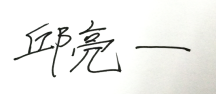 邱亮一